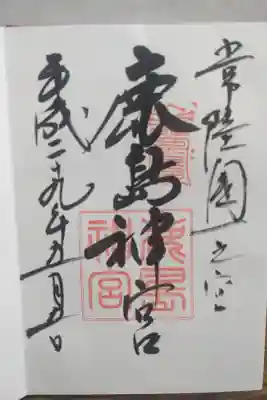 常陸國之一宮
鹿島神宮
平成二十九年五月五日
鹿島
神宮